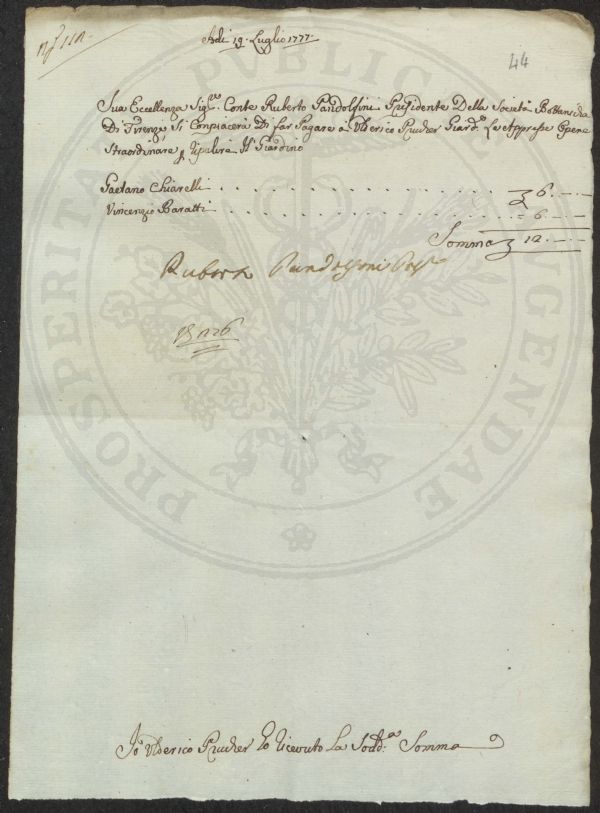 Adi 19. Luglio 1777.
44
Sua Eccellenza Sig.re Conte Ruberto Pandolfini Presidente Della Società Bottanicha
Di Firenze Si Conpiacerà Di far Pagare à Ulderico Prucher Giard.e Le Apprese Opene
Straordinare p. ripulire Il Giardino
Gaetano Chiarelli . . . . . . . . . . £ 6. — . —
Vincenzio Baratti . . . . . . . . . . = 6. — . —
Somma £ 12. — . —
Ruberto Pandolfini
Io Ulderico Prucher ho ricevuto La Sod.a Somma
PROSPERITATI PUBLICAE AUGENDAE